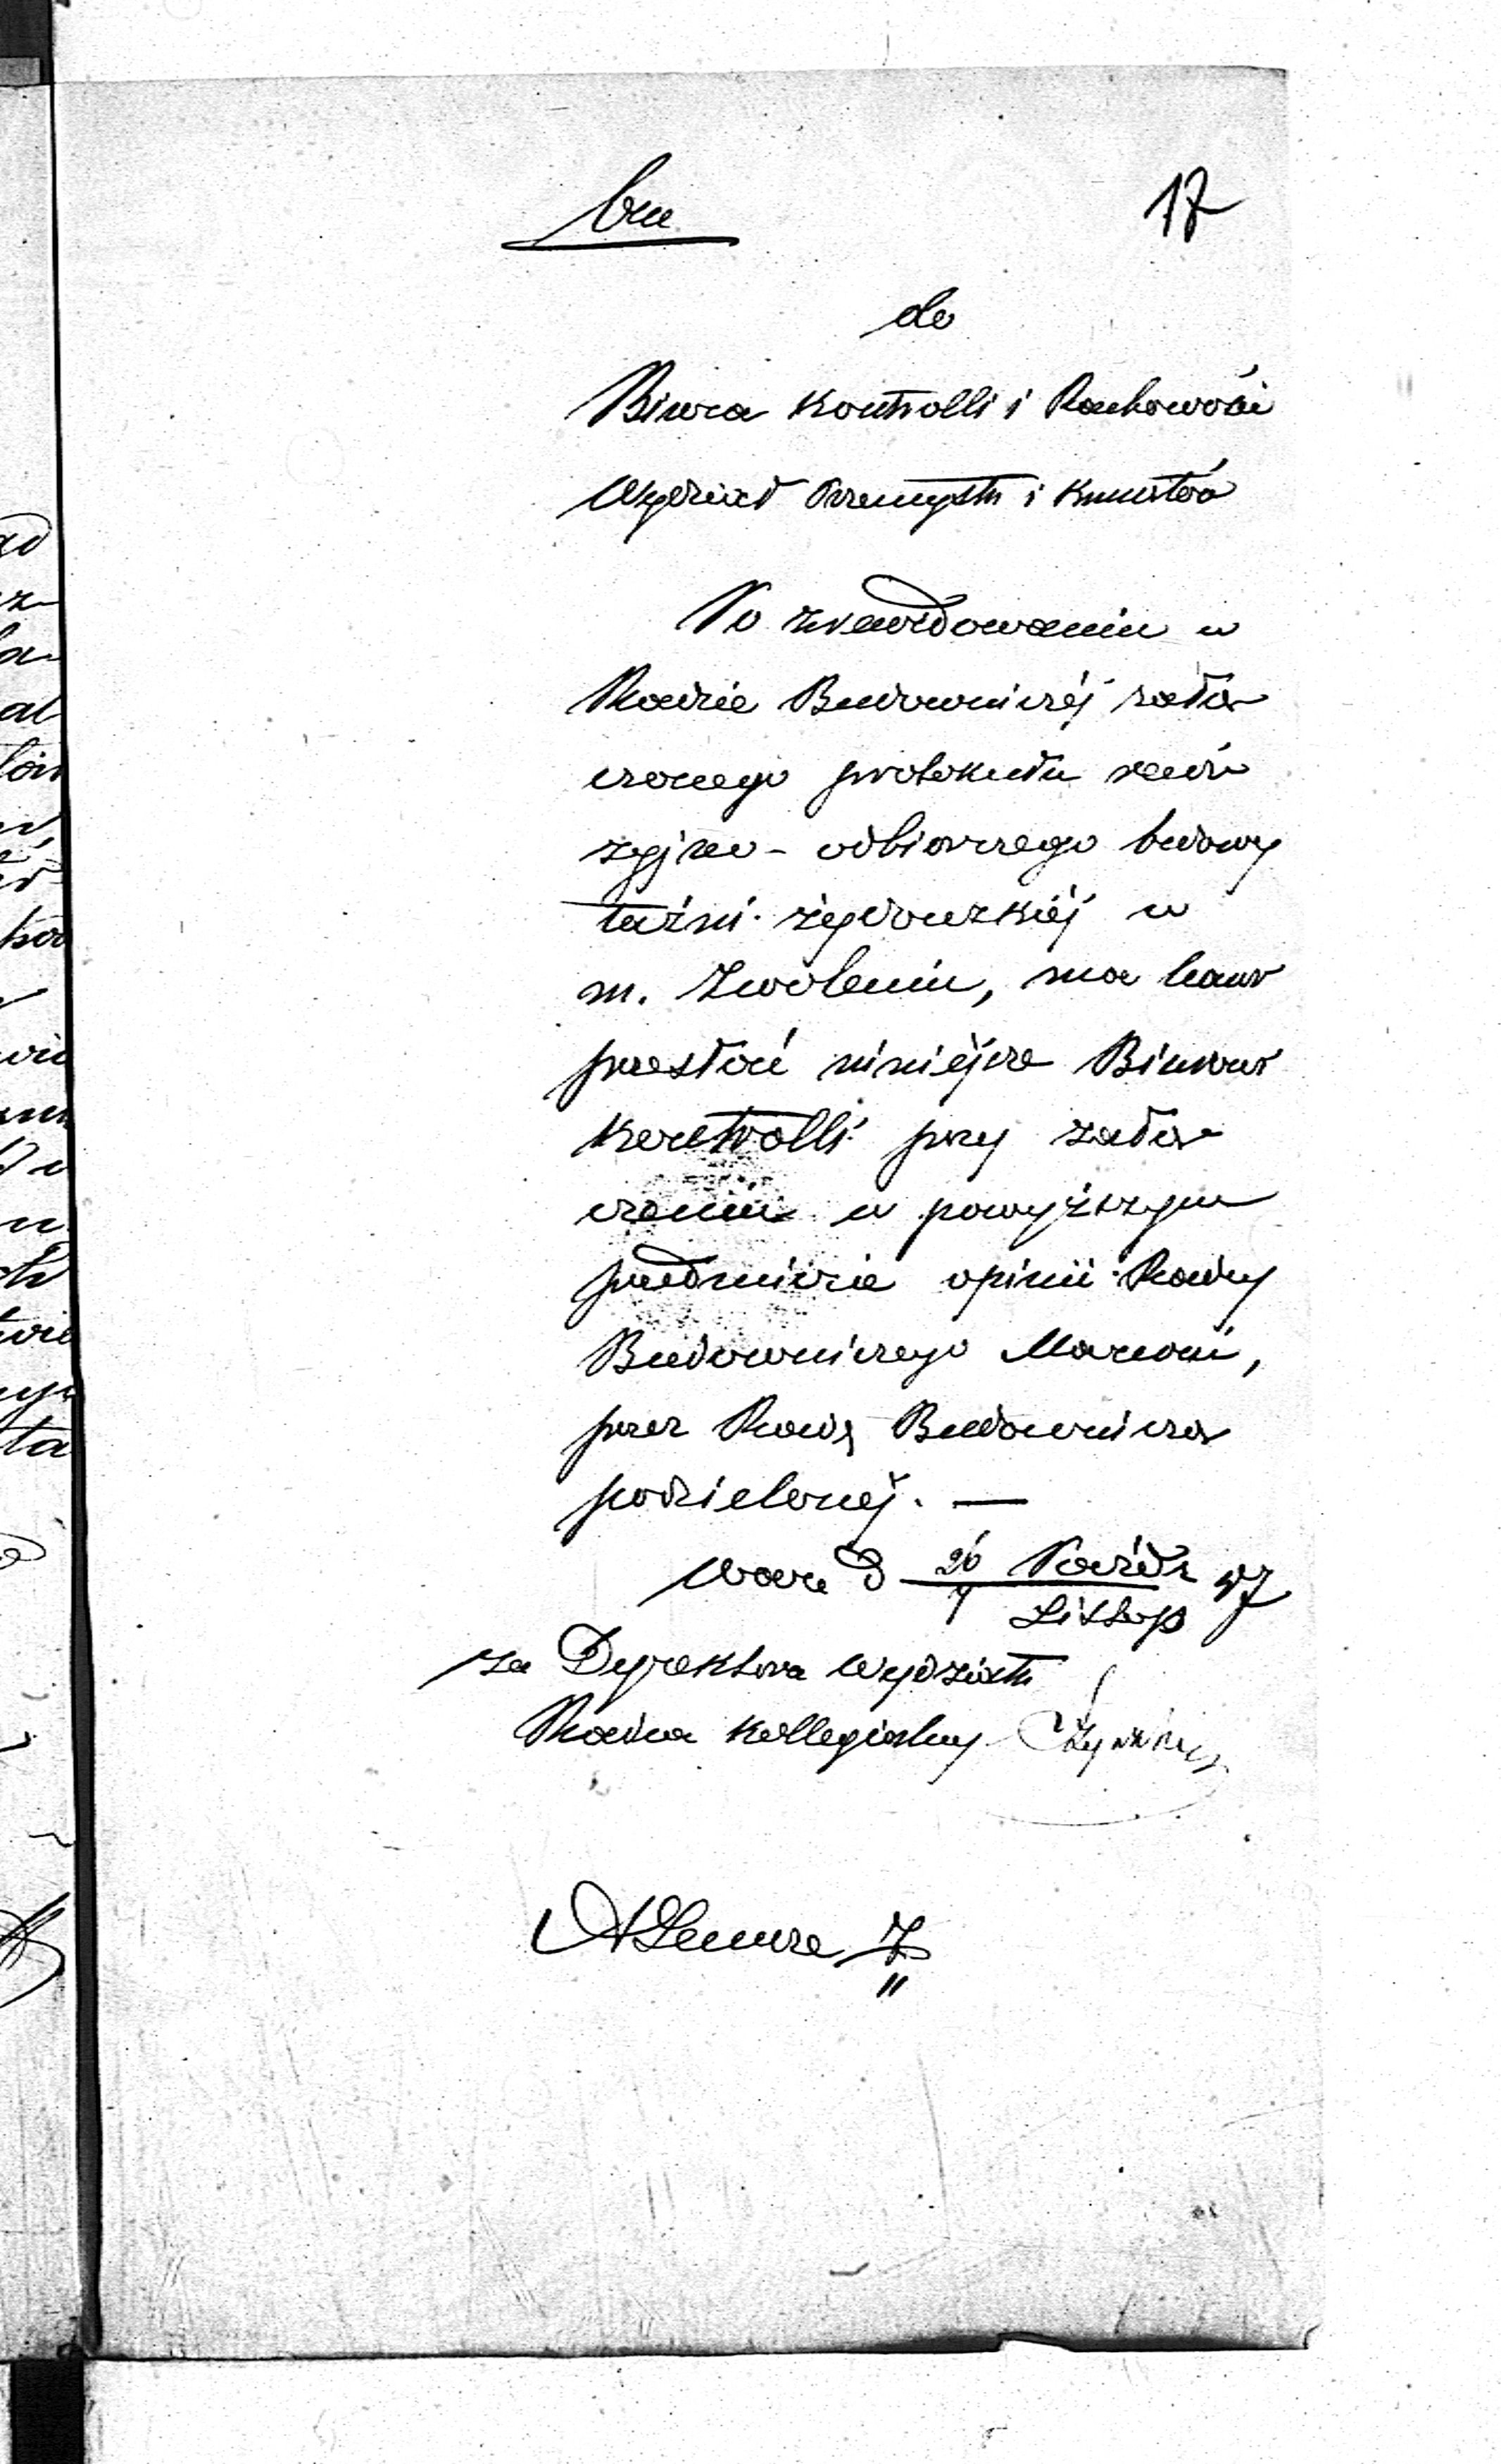 17
do
Biura Kontrolli i Rachowości
Wydział Przemysłu i Kunsztów
Po zrewidowaniu w
Radzie Budowniczéj załą-
czonego protokułu rewi-
zyjno-odbiorczego budowy
łaźni żydowskiéj w
m. Zwoleniu, ma honor
przesłać niniejsze Biurowi
Kontrolli przy załą-
czeniu w powyższym
przedmiocie opinii Radcy
Budowniczego Marconi,
przez Radę Budowniczą
podzielonéj. —
Warsz d 26 Paźdz 47
7 Listop
za Dyrektora Wydziału
Radca Kollegialny